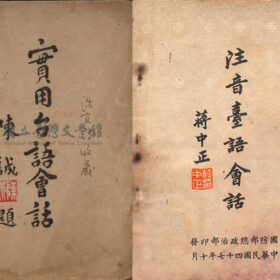 實用台語會話
陳誠題
收藏
National Museum of Taiwan Literature
注音臺語會話
蔣中正
國防部總政治部印發
中華民國四十七年十月